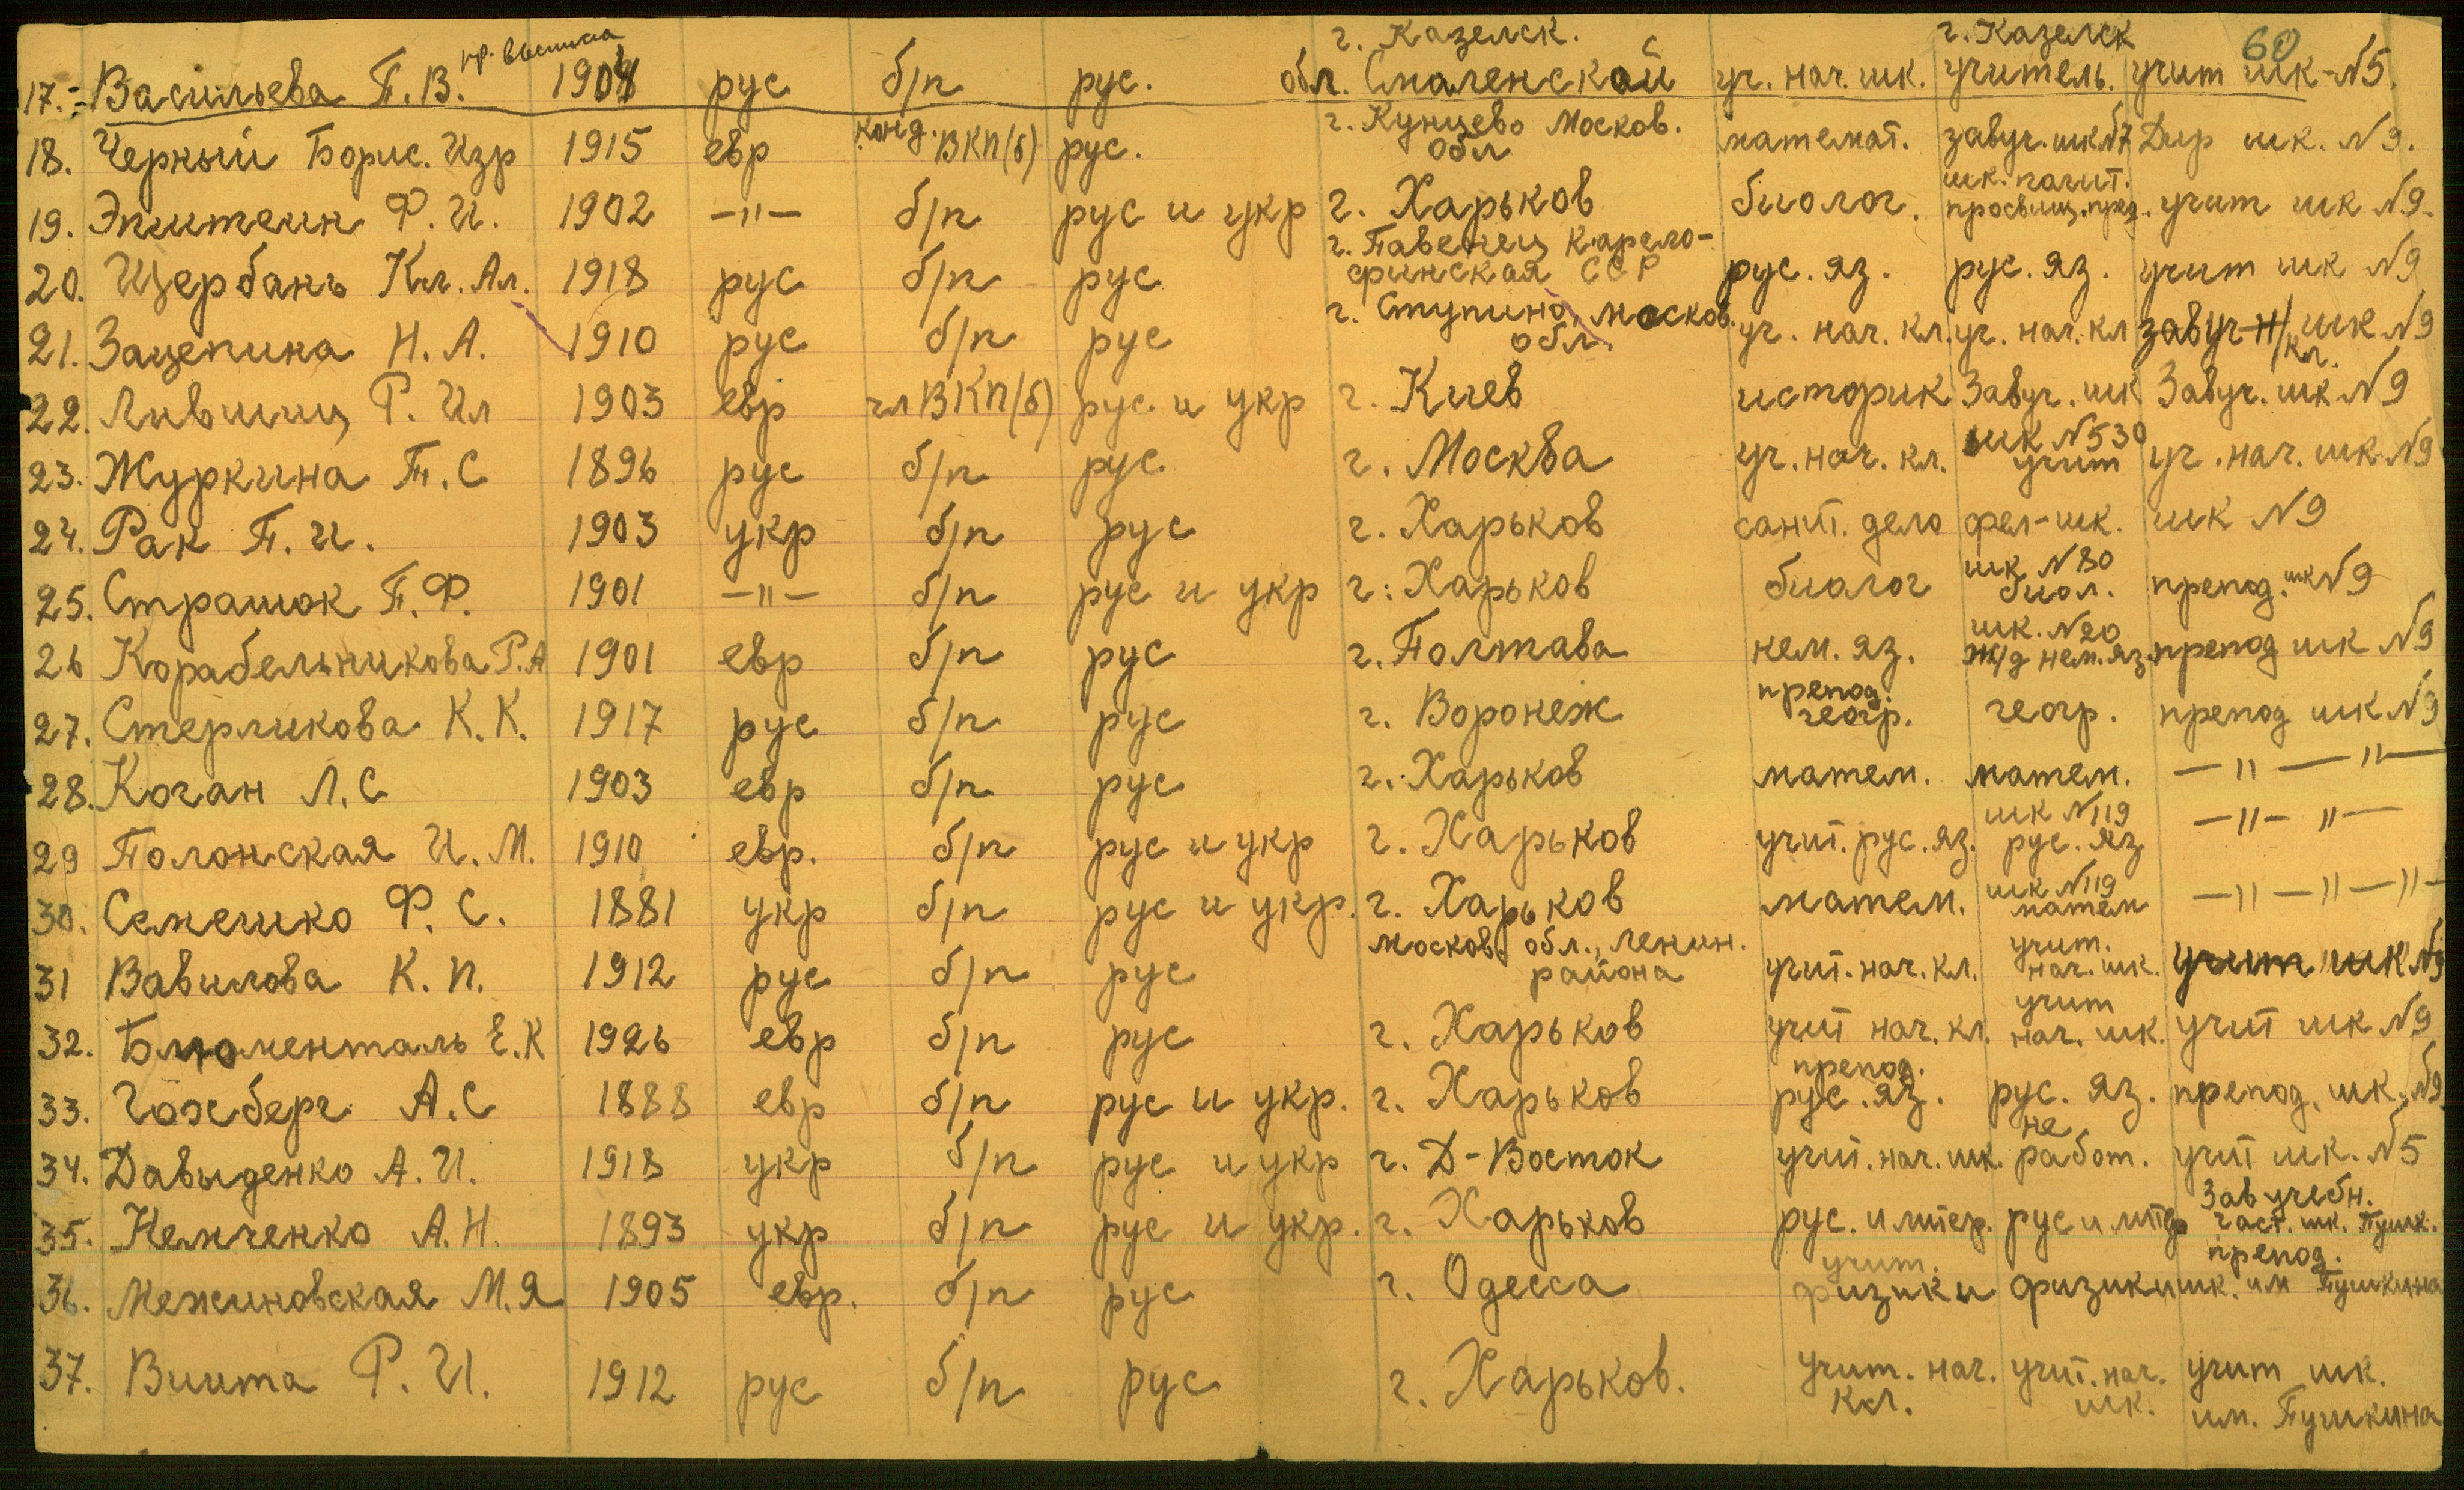 60
17. Васильева П.В. 1904 рус б/п рус. г. Казелск. обл. Смаленской уч. нач. шк. г. Казелск учитель. учит шк-N5.
18. Черный Борис. Изр 1915 евр канд. ВКП(б) рус. г. Кунцево Москов. обл математ. завуч. шк N7 Дир шк. N9.
19. Эпштеин Ф. И. 1902 —"— б/п рус и укр г. Харьков биолог. шк. учит шк N9.
20. Щербань Кл. Ал. 1918 рус б/п рус г. Павенец Карело-финская ССР рус. яз. рус. яз. учит шк N9
21. Зацепина Н. А. 1910 рус б/п рус г. Ступино, Москов. обл. уч. нач. кл. уч. нач. кл завуч-н/кл. шк N9
22. Лившиц Р. Ил 1903 евр чл ВКП(б) рус. и укр г. Киев историк Завуч. шк Завуч. шк N9
23. Журкина П. С 1896 рус б/п рус. г. Москва уч. нач. кл. шк N530 учит уч. нач. шк. N9
24. Рак П. И. 1903 укр б/п рус г. Харьков санит. дело фел-шк. шк N9
25. Страшок П. Ф. 1901 —"— б/п рус и укр г. Харьков биолог шк N80 биол. препод. шк N9
26 Корабельникова Р. А 1901 евр б/п рус г. Полтава нем. яз. шк. N20 ж/д нем. яз. препод шк N9
27. Стерликова К. К. 1917 рус б/п рус г. Воронеж препод. геогр. геогр. препод шк N9
28. Коган Л. С 1903 евр б/п рус г. Харьков матем. матем. —"—"—
29 Полонская И. М. 1910 евр. б/п рус и укр г. Харьков учит. рус. яз. шк N119 рус. яз —"— "—
30. Семешко Ф. С. 1881 укр б/п рус и укр. г. Харьков матем. шк N119 матем —"—"—"—
31 Вавилова К. П. 1912 рус б/п рус Москов. обл., Ленин. района учит. нач. кл. учит. нач. шк. учит шк N9
32. Блюменталь Е. К 1926 евр б/п рус г. Харьков учит нач. кл. учит нач. шк. учит шк N9
33. Гохберг А. С 1888 евр б/п рус и укр. г. Харьков препод. рус. яз. рус. яз. препод. шк. N9
34. Давыденко А. И. 1918 укр б/п рус и укр г. Д-Восток учит. нач. шк. не работ. учит шк. N5
35. Немченко А. Н. 1893 укр б/п рус и укр. г. Харьков рус. и литер. рус и литер Зав учебн. част. шк. Пушк.
36. Межиновская М. Я 1905 евр. б/п рус г. Одесса учит. физики физики препод. шк. им Пушкина
37. Виита Р. И. 1912 рус б/п рус г. Харьков. учит. нач. кл. учит. нач. шк. учит шк. им. Пушкина